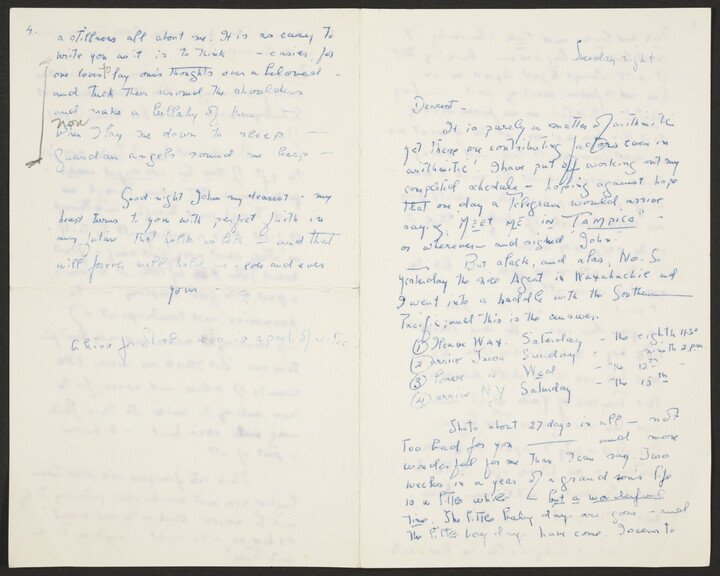 4.
a stillness all about me. It is as easy to
write you as it is to think - easier, for
one loves to lay one's thoughts over a beloved -
and tuck them around the shoulders
and make a lullaby of them
now
When I lay me down to sleep -
Guardian angels round me keep
Good-night John my dearest - my
heart turns to you with perfect faith in
any future that holds us both - and that
will forever will hold us - ever and ever
yours -
Sunday night
Dearest -
It is purely a matter of arithmetic
yet there are contributing factors even in
arithmetic! I have put off working out my
completed schedule - hoping against hope
that one day a Telegram would arrive
saying, "MEET ME IN TAMPICO" -
or wherever - and signed John.
But alack, and alas, No. So
yesterday the nice Agent in Waxahachie and
I went into a huddle with the Southern
Pacific and this is the answer.
① I leave Wax. Saturday - the eighth 11:30
② arrive Sunday - ninth 2 pm
③ leave " Wed - the 12th -
④ arrive N.Y. Saturday - the 15th
That's about 27 days in all - not
too bad for you and more
wonderful for me than I can say. Two
weeks in a year of a grand sons life
is a little while - but a wonderful
time. The little baby days are gone - and
the little boy days have come. I seem to